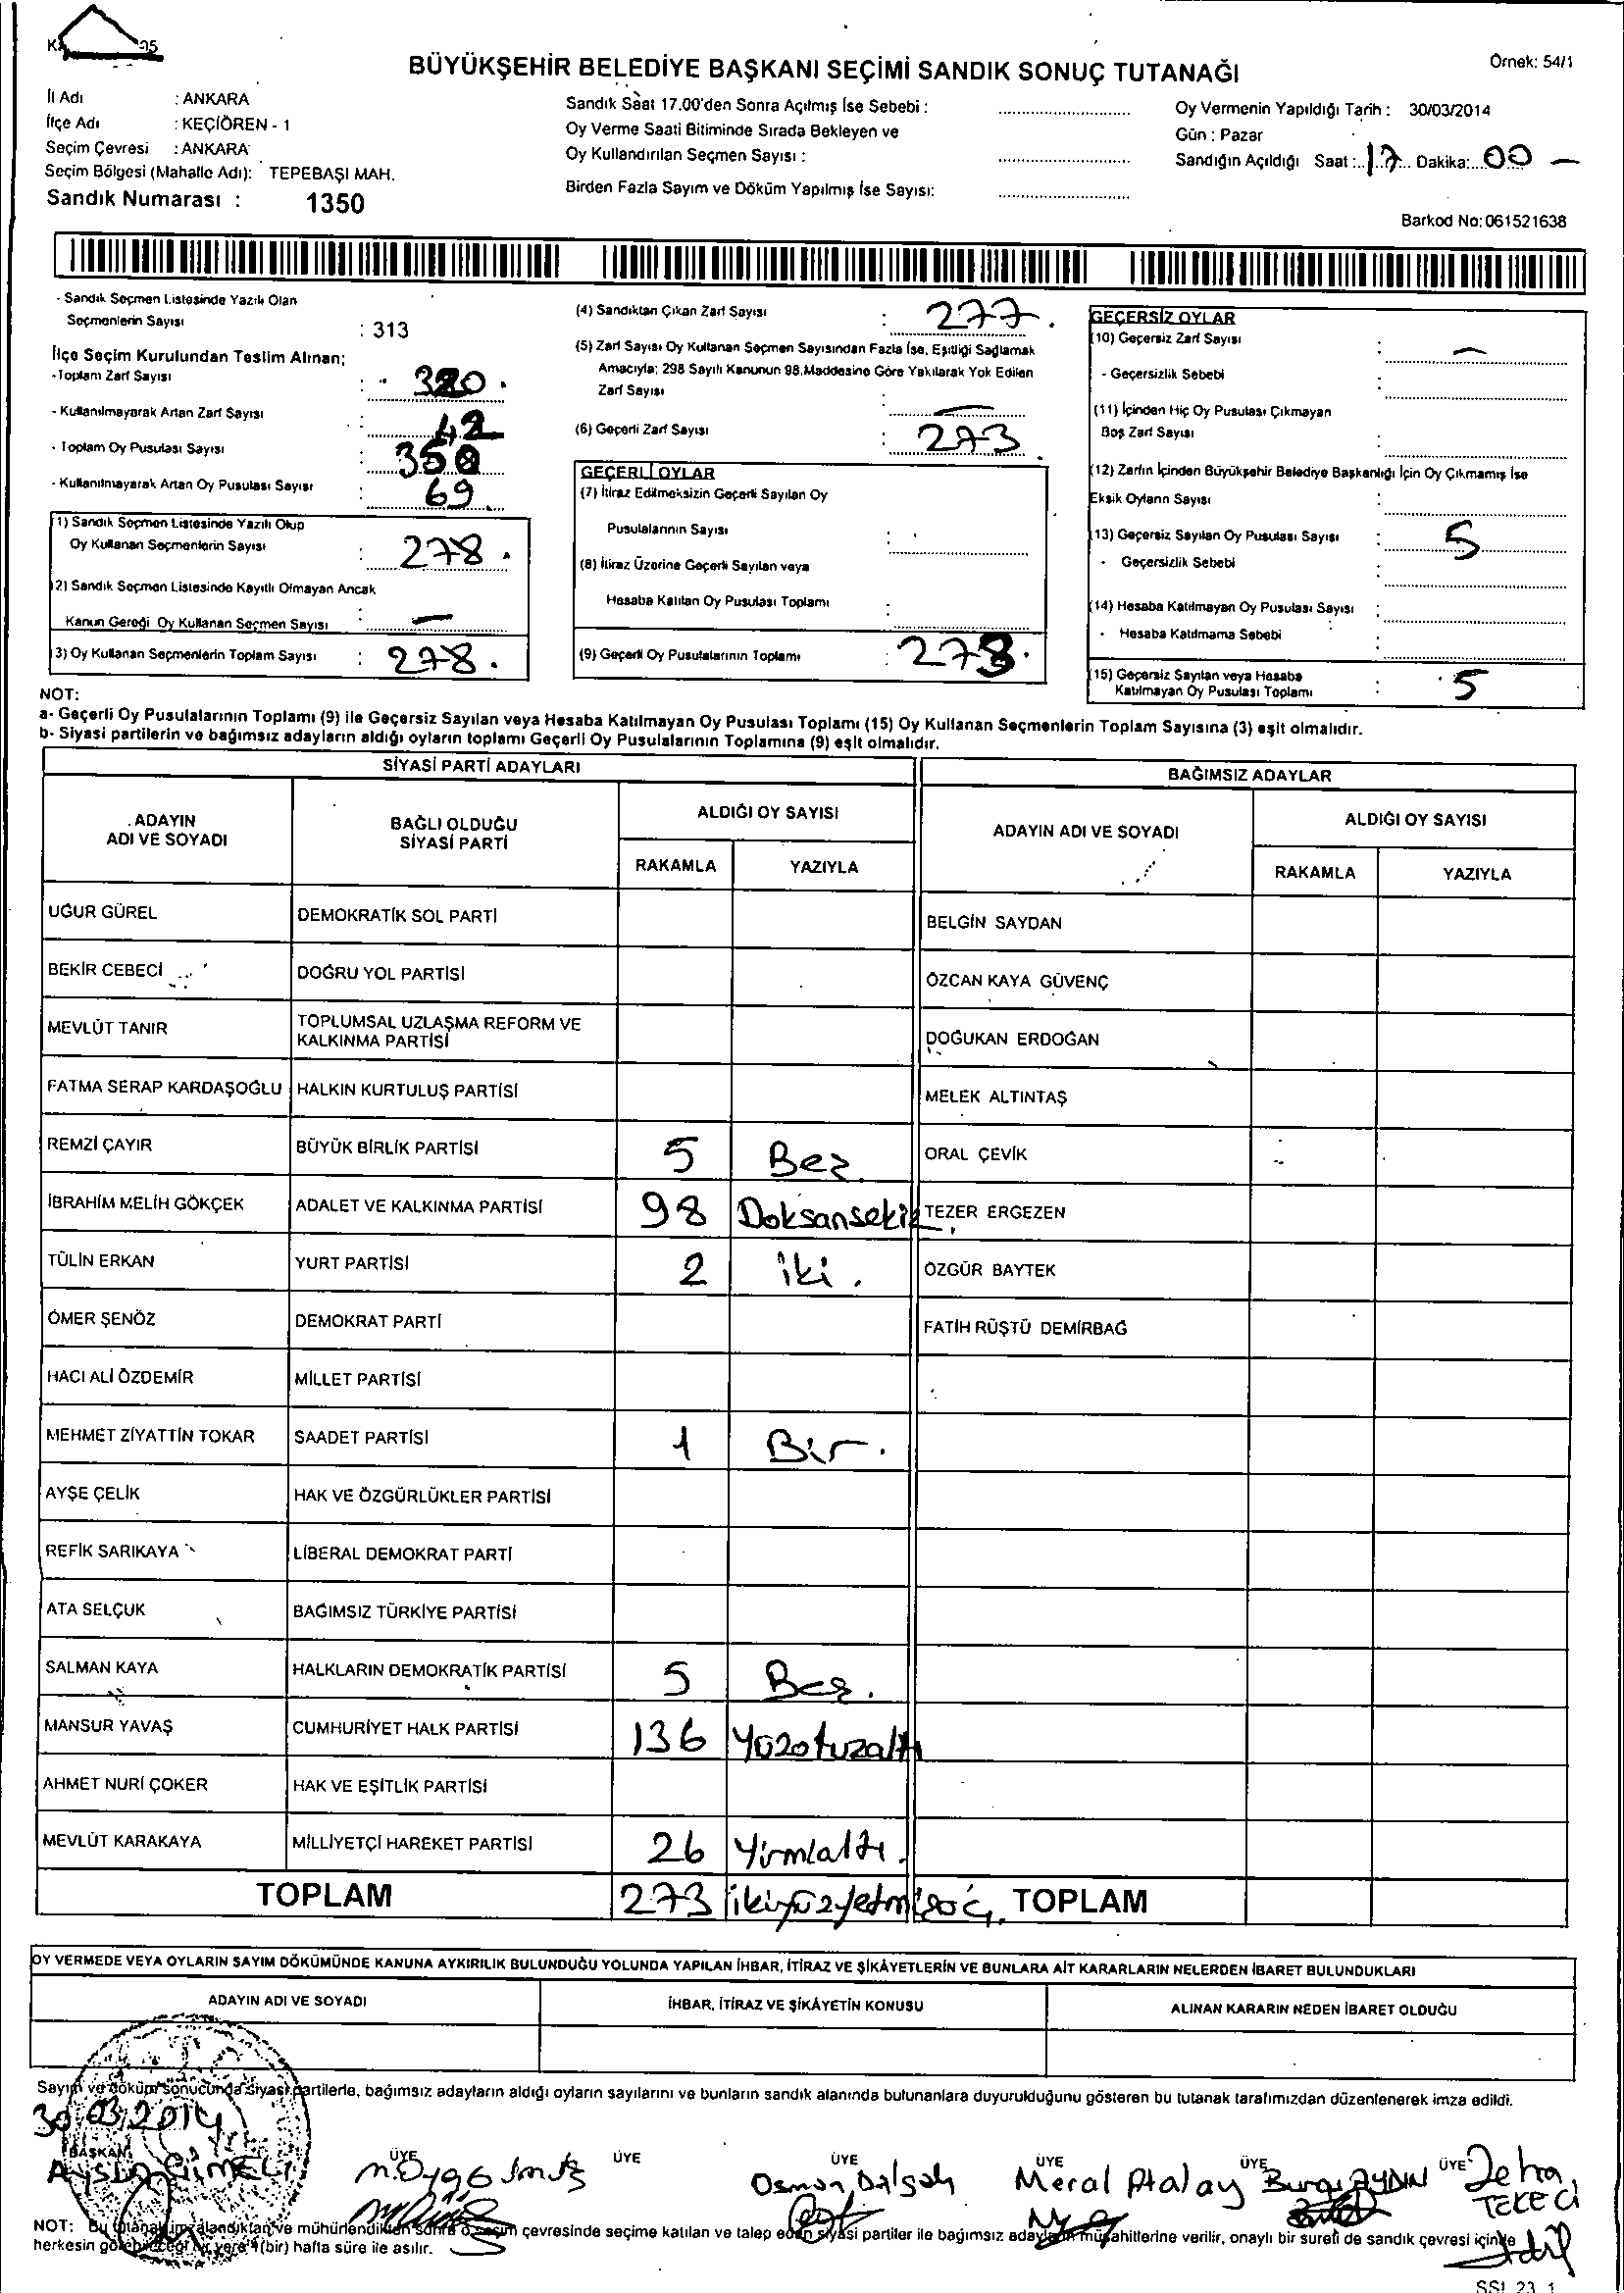 BÜYÜKŞEHİR BELEDİYE BAŞKANI SEÇİMİ SANDIK SONUÇ TUTANAĞI
Örnek: 54/1
İl Adı : ANKARA
İlçe Adı : KEÇİÖREN - 1
Seçim Çevresi : ANKARA
Seçim Bölgesi (Mahalle Adı): TEPEBAŞI MAH.
Sandık Numarası : 1350
Sandık Saat 17.00'den Sonra Açılmış İse Sebebi :
Oy Verme Saati Bitiminde Sırada Bekleyen ve
Oy Kullandırılan Seçmen Sayısı :
Birden Fazla Sayım ve Döküm Yapılmış İse Sayısı:
Oy Vermenin Yapıldığı Tarih : 30/03/2014
Gün : Pazar
Sandığın Açıldığı Saat : 17 Dakika: 00 -
Barkod No: 061521638
- Sandık Seçmen Listesinde Yazılı Olan
Seçmenlerin Sayısı : 313
İlçe Seçim Kurulundan Teslim Alınan;
-Toplam Zarf Sayısı : 320
- Kullanılmayarak Artan Zarf Sayısı : 42
- Toplam Oy Pusulası Sayısı : 350
- Kullanılmayarak Artan Oy Pusulası Sayısı : 69
1) Sandık Seçmen Listesinde Yazılı Olup
Oy Kullanan Seçmenlerin Sayısı : 278
2) Sandık Seçmen Listesinde Kayıtlı Olmayan Ancak
Kanun Gereği Oy Kullanan Seçmen Sayısı : -
3) Oy Kullanan Seçmenlerin Toplam Sayısı : 278.
(4) Sandıktan Çıkan Zarf Sayısı : 277.
(5) Zarf Sayısı Oy Kullanan Seçmen Sayısından Fazla İse, Eşitliği Sağlamak
Amacıyla; 298 Sayılı Kanunun 98.Maddesine Göre Yakılarak Yok Edilen
Zarf Sayısı : -
(6) Geçerli Zarf Sayısı : 273
GEÇERLİ OYLAR
(7) İtiraz Edilmeksizin Geçerli Sayılan Oy
Pusulalarının Sayısı :
(8) İtiraz Üzerine Geçerli Sayılan veya
Hesaba Katılan Oy Pusulası Toplamı :
(9) Geçerli Oy Pusulalarının Toplamı : 273.
GEÇERSİZ OYLAR
(10) Geçersiz Zarf Sayısı : -
- Geçersizlik Sebebi :
(11) İçinden Hiç Oy Pusulası Çıkmayan
Boş Zarf Sayısı :
(12) Zarfın İçinden Büyükşehir Belediye Başkanlığı İçin Oy Çıkmamış İse
Eksik Oyların Sayısı :
13) Geçersiz Sayılan Oy Pusulası Sayısı : 5
- Geçersizlik Sebebi :
(14) Hesaba Katılmayan Oy Pusulası Sayısı :
- Hesaba Katılmama Sebebi :
(15) Geçersiz Sayılan veya Hesaba
Katılmayan Oy Pusulası Toplamı : 5
NOT:
a- Geçerli Oy Pusulalarının Toplamı (9) ile Geçersiz Sayılan veya Hesaba Katılmayan Oy Pusulası Toplamı (15) Oy Kullanan Seçmenlerin Toplam Sayısına (3) eşit olmalıdır.
b- Siyasi partilerin ve bağımsız adayların aldığı oyların toplamı Geçerli Oy Pusulalarının Toplamına (9) eşit olmalıdır.
SİYASİ PARTİ ADAYLARI
BAĞIMSIZ ADAYLAR
ADAYIN ADI VE SOYADI
BAĞLI OLDUĞU SİYASİ PARTİ
ALDIĞI OY SAYISI
RAKAMLA YAZIYLA
ADAYIN ADI VE SOYADI
ALDIĞI OY SAYISI
RAKAMLA YAZIYLA
UĞUR GÜREL DEMOKRATİK SOL PARTİ BELGİN SAYDAN
BEKİR CEBECİ DOĞRU YOL PARTİSİ ÖZCAN KAYA GÜVENÇ
MEVLÜT TANIR TOPLUMSAL UZLAŞMA REFORM VE KALKINMA PARTİSİ DOĞUKAN ERDOĞAN
FATMA SERAP KARDAŞOĞLU HALKIN KURTULUŞ PARTİSİ MELEK ALTINTAŞ
REMZİ ÇAYIR BÜYÜK BİRLİK PARTİSİ 5 Beş ORAL ÇEVİK
İBRAHİM MELİH GÖKÇEK ADALET VE KALKINMA PARTİSİ 98 Doksansekiz TEZER ERGEZEN
TÜLİN ERKAN YURT PARTİSİ 2 iki. ÖZGÜR BAYTEK
ÖMER ŞENÖZ DEMOKRAT PARTİ FATİH RÜŞTÜ DEMİRBAĞ
HACI ALİ ÖZDEMİR MİLLET PARTİSİ
MEHMET ZİYATTİN TOKAR SAADET PARTİSİ 1 Bir.
AYŞE ÇELİK HAK VE ÖZGÜRLÜKLER PARTİSİ
REFİK SARIKAYA LİBERAL DEMOKRAT PARTİ
ATA SELÇUK BAĞIMSIZ TÜRKİYE PARTİSİ
SALMAN KAYA HALKLARIN DEMOKRATİK PARTİSİ 5 Beş.
MANSUR YAVAŞ CUMHURİYET HALK PARTİSİ 136 Yüzotuzaltı
AHMET NURİ ÇOKER HAK VE EŞİTLİK PARTİSİ
MEVLÜT KARAKAYA MİLLİYETÇİ HAREKET PARTİSİ 26 Yirmialtı.
TOPLAM 273 ikiyüzyetmişüç. TOPLAM
OY VERMEDE VEYA OYLARIN SAYIM DÖKÜMÜNDE KANUNA AYKIRILIK BULUNDUĞU YOLUNDA YAPILAN İHBAR, İTİRAZ VE ŞİKÂYETLERİN VE BUNLARA AİT KARARLARIN NELERDEN İBARET BULUNDUKLARI
ADAYIN ADI VE SOYADI İHBAR, İTİRAZ VE ŞİKÂYETİN KONUSU ALINAN KARARIN NEDEN İBARET OLDUĞU
Sayım ve döküm sonucunda siyasi partilerle, bağımsız adayların aldığı oyların sayılarını ve bunların sandık alanında bulunanlara duyurulduğunu gösteren bu tutanak tarafımızdan düzenlenerek imza edildi.
30.03.2014
BAŞKAN ÜYE ÜYE ÜYE ÜYE ÜYE ÜYE
Osman Meral Atalay AYDIN Zehra TEKECİ
NOT: Bu tutanak imzalandıktan ve mühürlendikten sonra o seçim çevresinde seçime katılan ve talep eden siyasi partiler ile bağımsız adayların müşahitlerine verilir, onaylı bir sureti de sandık çevresi içinde
herkesin görebileceği bir yere 1(bir) hafta süre ile asılır.
SSI_23_1